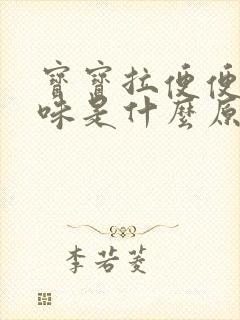 寶寶拉便便
味是什麼原
李若菱